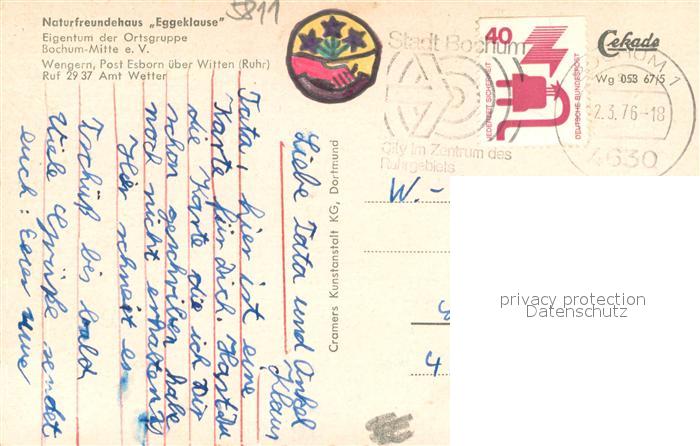 5811
Naturfreundehaus „Eggeklause"
Eigentum der Ortsgruppe
Bochum-Mitte e. V.
Wengern, Post Esborn über Witten (Ruhr)
Ruf 29 37 Amt Wetter
Stadt Bochum
City im Zentrum des
Ruhrgebiets
40
JEDERZEIT SICHERHEIT
DEUTSCHE BUNDESPOST
BOCHUM 1
2.3.76-18
4630
Cekade
Wg 053 67/5
Cramers Kunstanstalt KG, Dortmund
Liebe Tata und Onkel
Klaus
Tata, hier ist eine
Karte für Dich. Hast du
die Karte die ich Dir
schon geschriben habe
noch nicht erhalten?
Hier schneit es
Tschüß bis bald
Viele Grüße sendet
euch: Eerer Uwe
W.-
4
privacy protection
Datenschutz